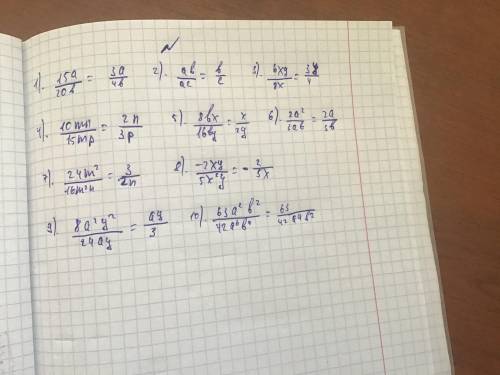 1). 15a/20b = 3a/4b 2). ab/ac = b/c 3). 6xy/8x = 3y/4
4). 10mn/15mp = 2n/3p 5). 8bx/16by = x/2y 6). 2a²/3ab = 2a/3b
7). 24m²/16m²n = 3/2n 8). -2xy/5x²y = - 2/5x
9). 8a²y²/24ay = ay/3 10). 63a²b²/42a⁶b⁴ = 63/42a⁴b²